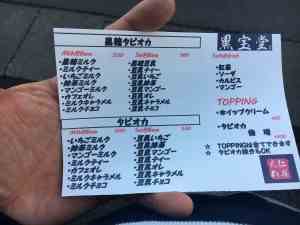 黒糖タピオカ
黒宝堂
・黒糖ミルク
・ミルクティー
・いちごミルク
・抹茶ミルク
・マンゴーミルク
・カフェオレ
・ミルクキャラメル
・ミルクチョコ
・豆乳いちご
・豆乳抹茶
・豆乳マンゴー
・豆乳カフェオレ
・豆乳キャラメル
・豆乳チョコ
・紅茶
・ソーダ
・カルピス
・マンゴー
TOPPING
・ホイップクリーム
・タピオカ
タピオカ
・いちごミルク
・抹茶ミルク
・マンゴーミルク
・ミルクティー
・カフェオレ
・ミルクキャラメル
・ミルクチョコ
・豆乳いちご
・豆乳抹茶
・豆乳マンゴー
・豆乳カフェオレ
・豆乳キャラメル
・豆乳チョコ
☆ TOPPINGは全てできます
☆ タピオカ抜きもOK